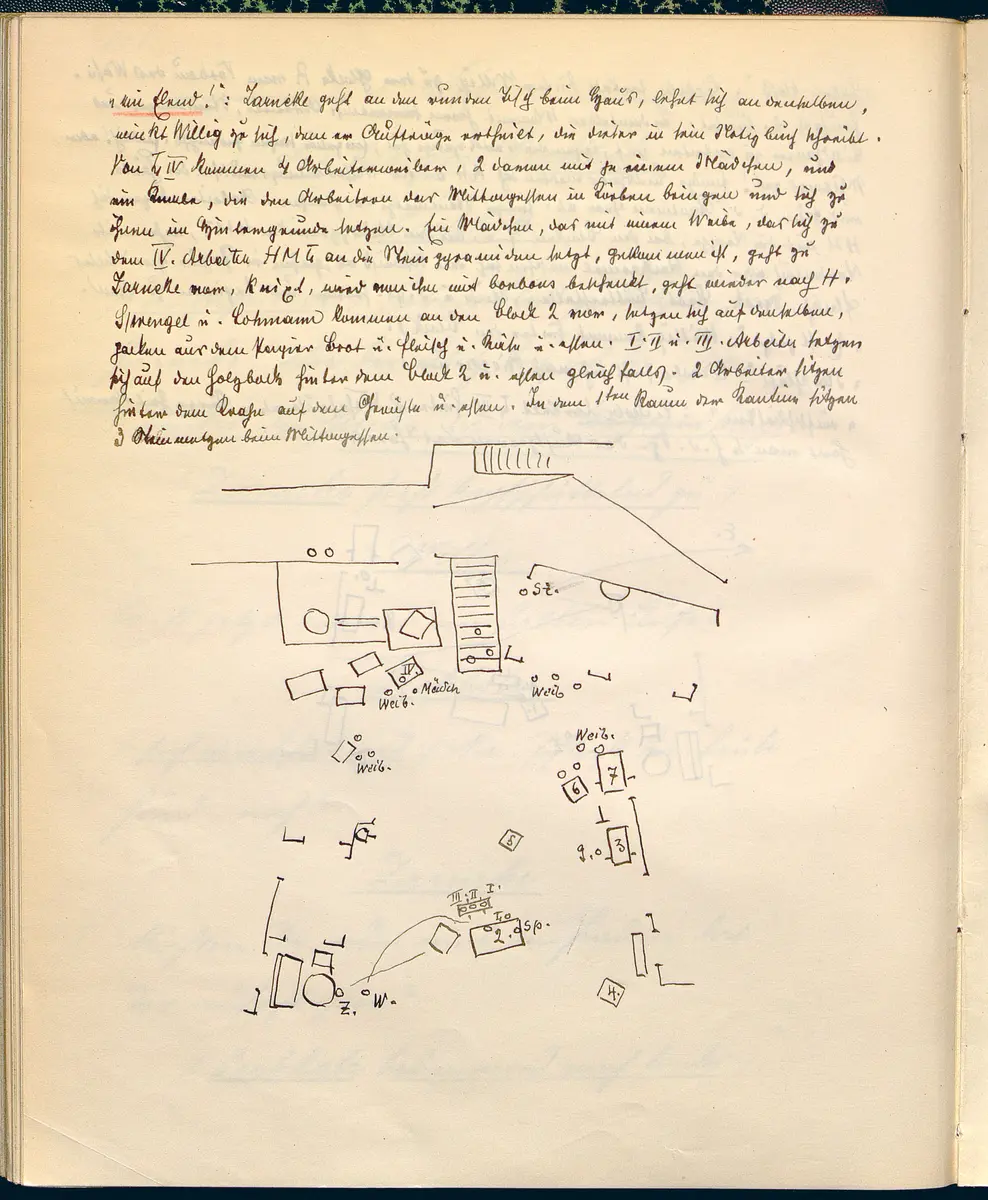 "ein Elend!": Zarncke geht an den runden Tisch beim Haus, lehnt sich an denselben,
winkt Willig zu sich, dem er Aufträge ertheilt, die dieser in sein Notizbuch schreibt.
Von IV kommen 4 Arbeiterweiber, 2 davon mit je einem Mädchen, und
ein Knabe, die den Arbeitern das Mittagessen in Körben bringen und sich zu
ihnen im Hintergrunde setzen. Ein Mädchen, das mit einem Weibe, das sich zu
dem IV. Arbeiter an die Steinpyramiden setzt, gekommen ist, geht zu
Zarncke vor, knixt, wird von ihm mit bonbons beschenkt, geht wieder nach H.
Sprengel u. Lohmann kommen an den Block 2 vor, setzen sich auf denselben,
packen aus dem Papier Brot u. Fleisch u. Käse u. essen. I. II u. III. Arbeiter setzen
sich auf den Holzbock hinter dem Block 2 u. essen gleichfalls. 2 Arbeiter sitzen
hinter dem Krahn auf dem Gerüste u. essen. In dem 1ten Raum der Kantine sitzen
3 Steinmetzen beim Mittagessen.
St.
IV
Mädch
Weib.
Weib
Weib.
Weib.
7
6
5
3
g.
III. II. I.
L.
2.
Sp.
4.
Z. W.